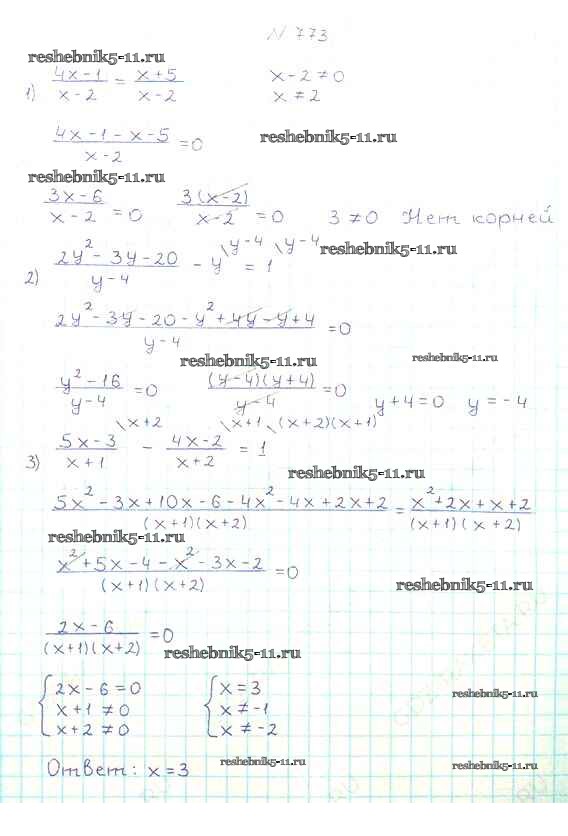 N 773
reshebnik5-11.ru
1) (4x-1)/(x-2) = (x+5)/(x-2)   x-2≠0
x≠2
(4x-1-x-5)/(x-2) =0   reshebnik5-11.ru
reshebnik5-11.ru
(3x-6)/(x-2) =0   (3(x-2))/(x-2) =0   3≠0 Нет корней
2) (2y²-3y-20)/(y-4) - y \y-4 = 1 \y-4   reshebnik5-11.ru
(2y²-3y-20-y²+4y-y+4)/(y-4) =0
reshebnik5-11.ru   reshebnik5-11.ru
(y²-16)/(y-4) =0   ((y-4)(y+4))/(y-4) =0   y+4=0   y=-4
3) (5x-3)/(x+1) \x+2 - (4x-2)/(x+2) \x+1 = 1 \(x+2)(x+1)
reshebnik5-11.ru
(5x²-3x+10x-6-4x²-4x+2x+2)/((x+1)(x+2)) = (x²+2x+x+2)/((x+1)(x+2))
reshebnik5-11.ru
(x²+5x-4-x²-3x-2)/((x+1)(x+2)) =0   reshebnik5-11.ru
(2x-6)/((x+1)(x+2)) =0   reshebnik5-11.ru
{2x-6=0   {x=3   reshebnik5-11.ru
x+1≠0   x≠-1
x+2≠0   x≠-2
Ответ: x=3   reshebnik5-11.ru   reshebnik5-11.ru